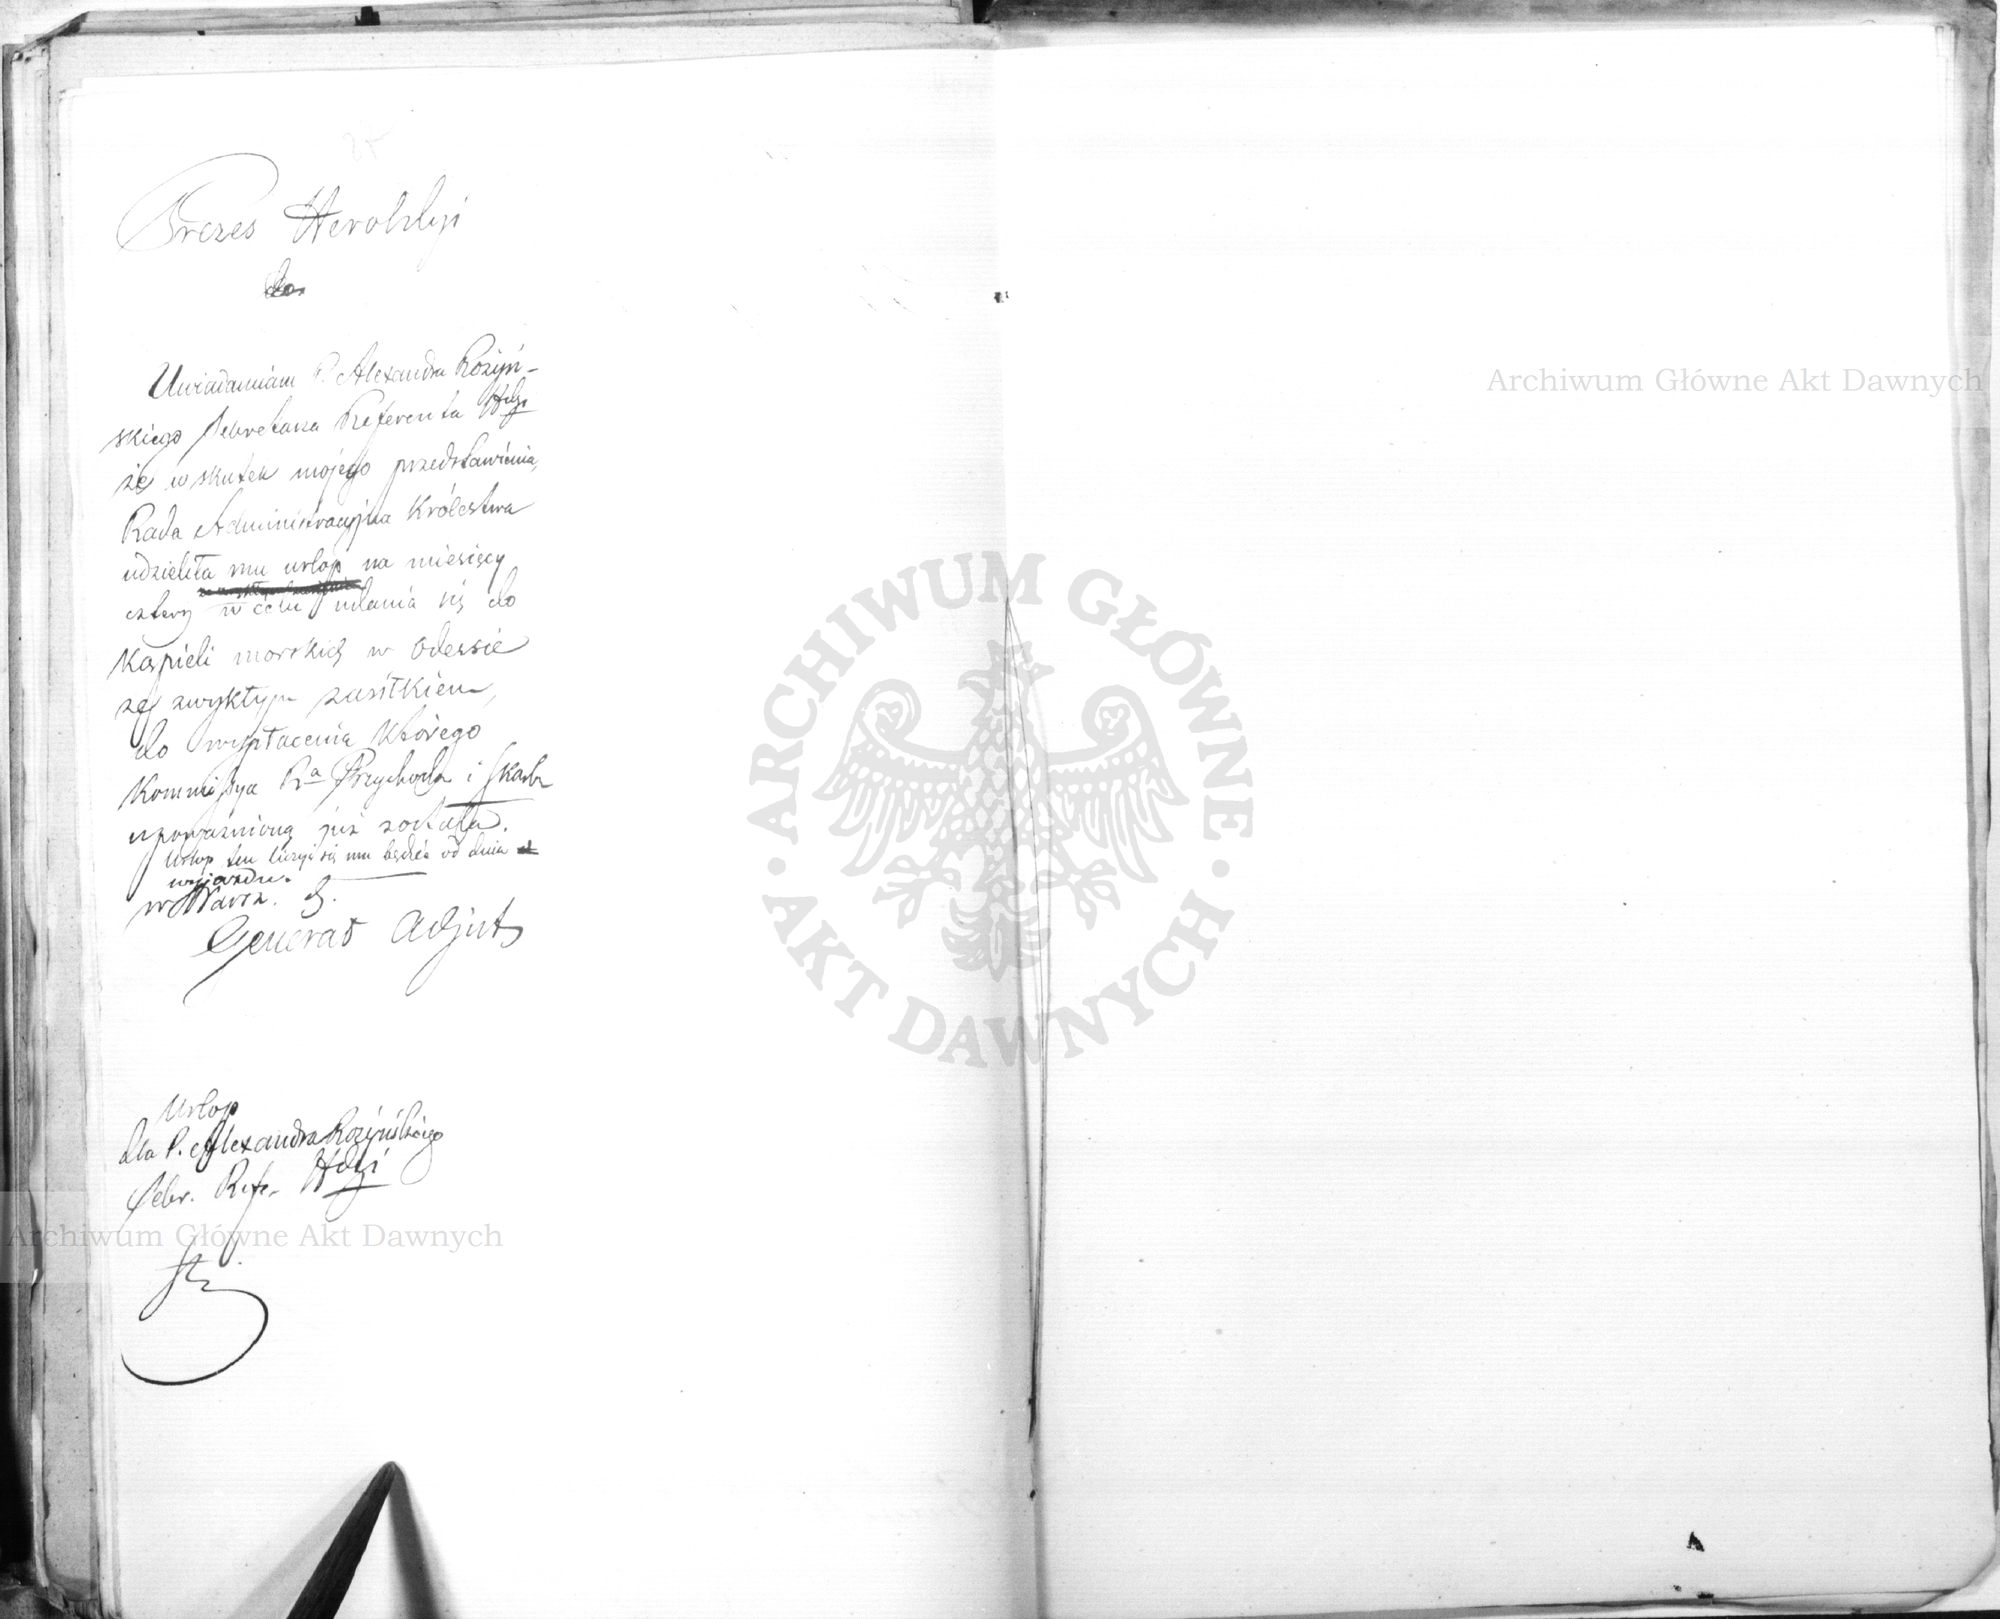 25
Prezes Heroldyi
do
Uwiadamiam P. Alexandra Rożyń-
skiego Sekretarza Referenta Hdyi
że w skutek mojego przedstawienia,
Rada Administracyjna Królestwa
udzieliła mu urlop na miesięcy
cztery w celu udania się do
kąpieli morskich w Odessie
ze zwykłym zasiłkiem,
do wypłacenia którego
Kommissya Ra Przychodu i Skarbu
upoważnioną już została.
Urlop ten liczyć się mu będzie od dnia
wyjazdu.
w Warsz. d.
Generał Adjut
Urlop
dla P. Alexandra Rożyńskiego
Sekr. Refe. Hdyi
Archiwum Główne Akt Dawnych
Archiwum Główne Akt Dawnych
ARCHIWUM GŁÓWNE
AKT DAWNYCH